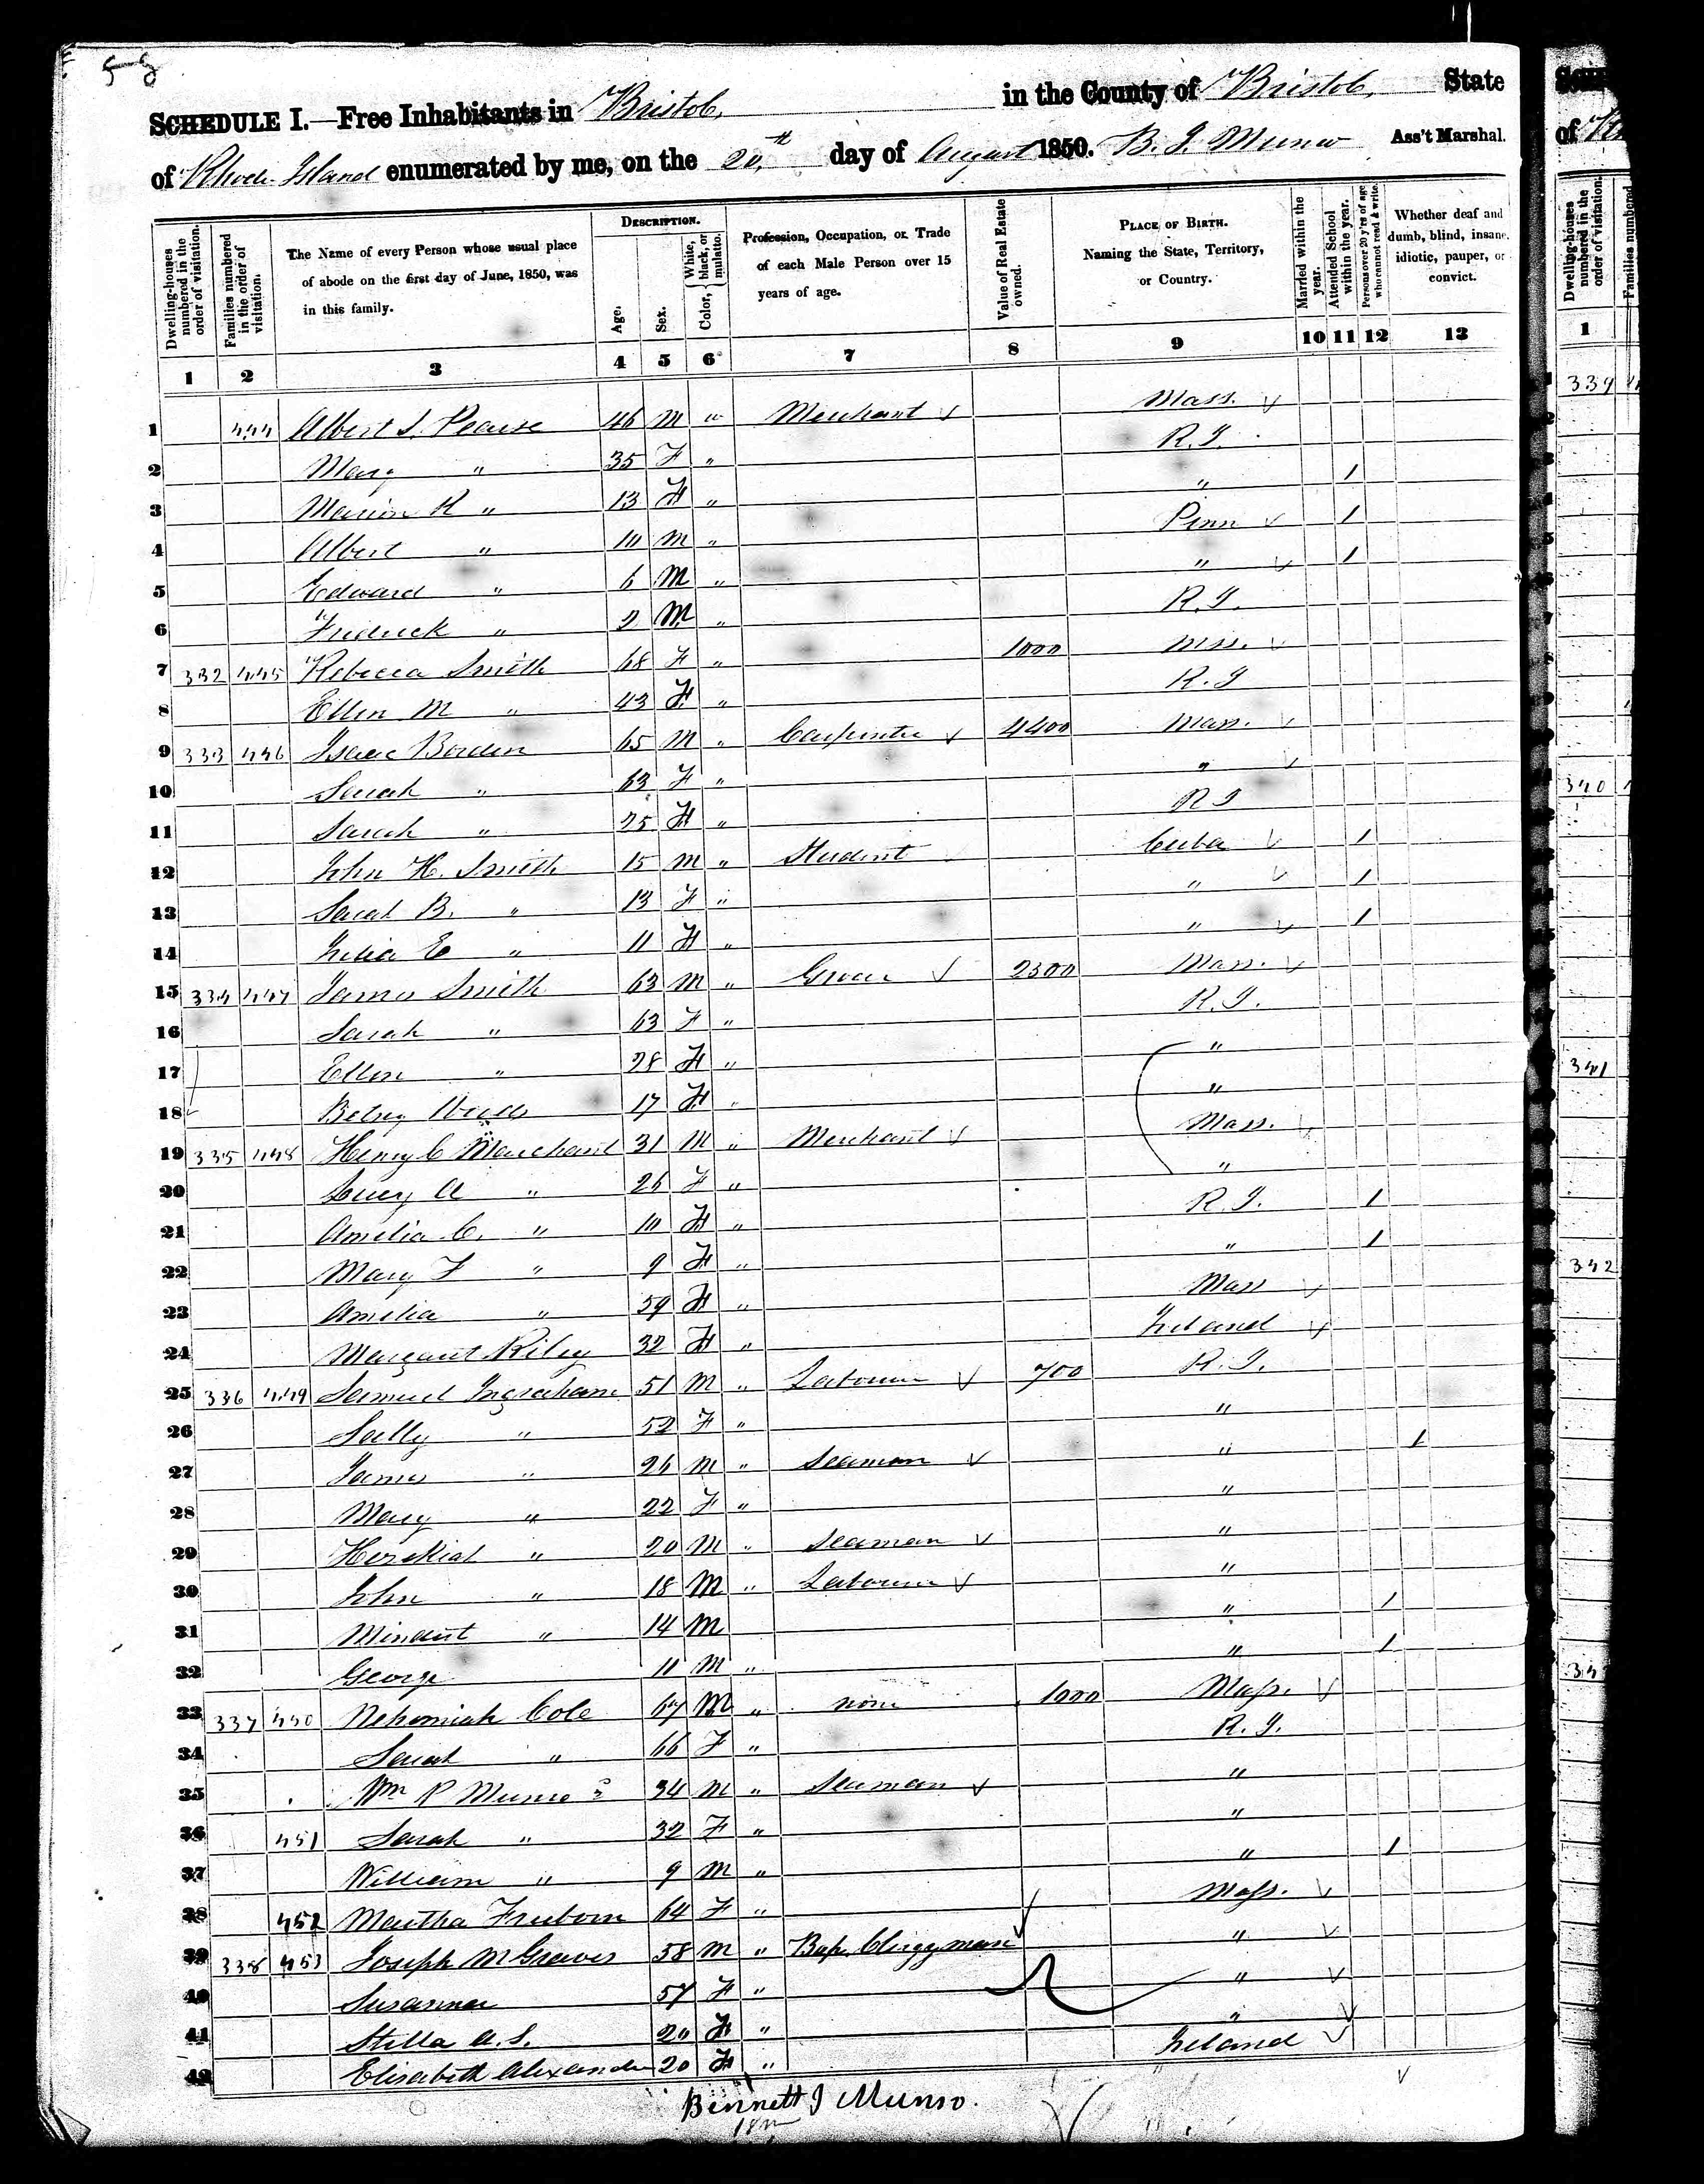 58
SCHEDULE I.—Free Inhabitants in Bristol, in the County of Bristol, State
of Rhode Island enumerated by me, on the 20th day of August 1850. B. J. Munro Ass't Marshal.
Dwelling-houses numbered in the order of visitation.
Families numbered in the order of visitation.
The Name of every Person whose usual place of abode on the first day of June, 1850, was in this family.
DESCRIPTION.
Age.
Sex.
Color, White, black, or mulatto.
Profession, Occupation, or Trade of each Male Person over 15 years of age.
Value of Real Estate owned.
PLACE OF BIRTH. Naming the State, Territory, or Country.
Married within the year.
Attended School within the year.
Persons over 20 y'rs of age who cannot read & write.
Whether deaf and dumb, blind, insane, idiotic, pauper, or convict.
1 2 3 4 5 6 7 8 9 10 11 12 13
1 444 Albert S. Pearse 46 M " Merchant ✓ Mass. ✓
2 Mary " 35 F " R.I.
3 Marion R " 13 F " " 1
4 Albert " 10 M " Penn ✓ 1
5 Edward " 6 M " " ✓ 1
6 Fredrick " 2 M " R.I.
7 332 445 Rebecca Smith 68 F " 1000 Mss. ✓
8 Ellen M " 43 F " R.I
9 333 446 Isaac Borden 65 M " Carpenter ✓ 4400 Mass. ✓
10 Sarah " 63 F " " ✓
11 Sarah " 25 F " R I
12 John H. Smith 15 M " Student Cuba ✓ 1
13 Sarah B. " 13 F " " ✓ 1
14 Julia E " 11 F " " ✓ 1
15 334 447 James Smith 63 M " Grocer ✓ 2300 Mass. ✓
16 Sarah " 63 F " R.I.
17 Ellen " 28 F " "
18 Betsey 17 F " "
19 335 448 Henry C Marchant 31 M " Merchant ✓ Mass. ✓
20 Lucy A " 26 F " "
21 Amelia C. " 10 F " R.I. 1
22 Mary F " 9 F " " 1
23 Amelia " 59 F " Mass ✓
24 Margaret Riley 32 F " Ireland ✓
25 336 449 Samuel Ingraham 51 M " Labourer ✓ 700 R.I.
26 Sally " 52 F " "
27 James " 26 M " Seaman ✓ " 1
28 Mary " 22 F " "
29 Hezekiah " 20 M " Seaman ✓ "
30 John " 18 M " Labourer ✓ "
31 " 14 M " 1
32 George 11 M " " 1
33 337 450 Nehemiah Cole 67 M " none 1000 Mass. ✓
34 Sarah " 66 F " R.I.
35 Wm P Munro 34 M " Seaman ✓ "
36 451 Sarah " 32 F " "
37 William " 9 M " " 1
38 452 Martha Freeborn 64 F " Mass. ✓
39 338 453 Joseph M Graves 58 M " Bap. Clergyman ✓ " ✓
40 Susanna 57 F " " ✓
41 Stella A. S. 20 F " " ✓
42 Elisabeth Alexander 20 F " Ireland ✓
Bennett J Munro.
of
Dwelling-houses numbered in the order of visitation.
Families numbered
1
339
340
341
342